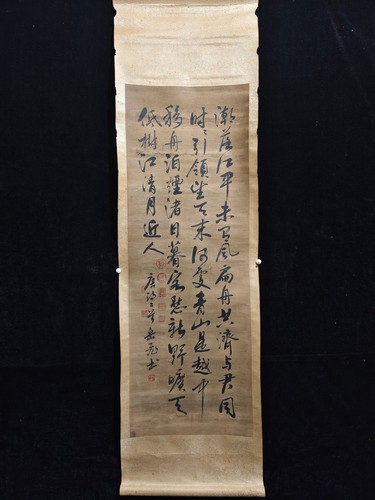 潮落江平未有風扁舟共濟與君同
時〻引領望天末何處青山是越中
移舟泊煙渚日暮客愁新野曠天
低樹江清月近人
唐詩二首岳飛書